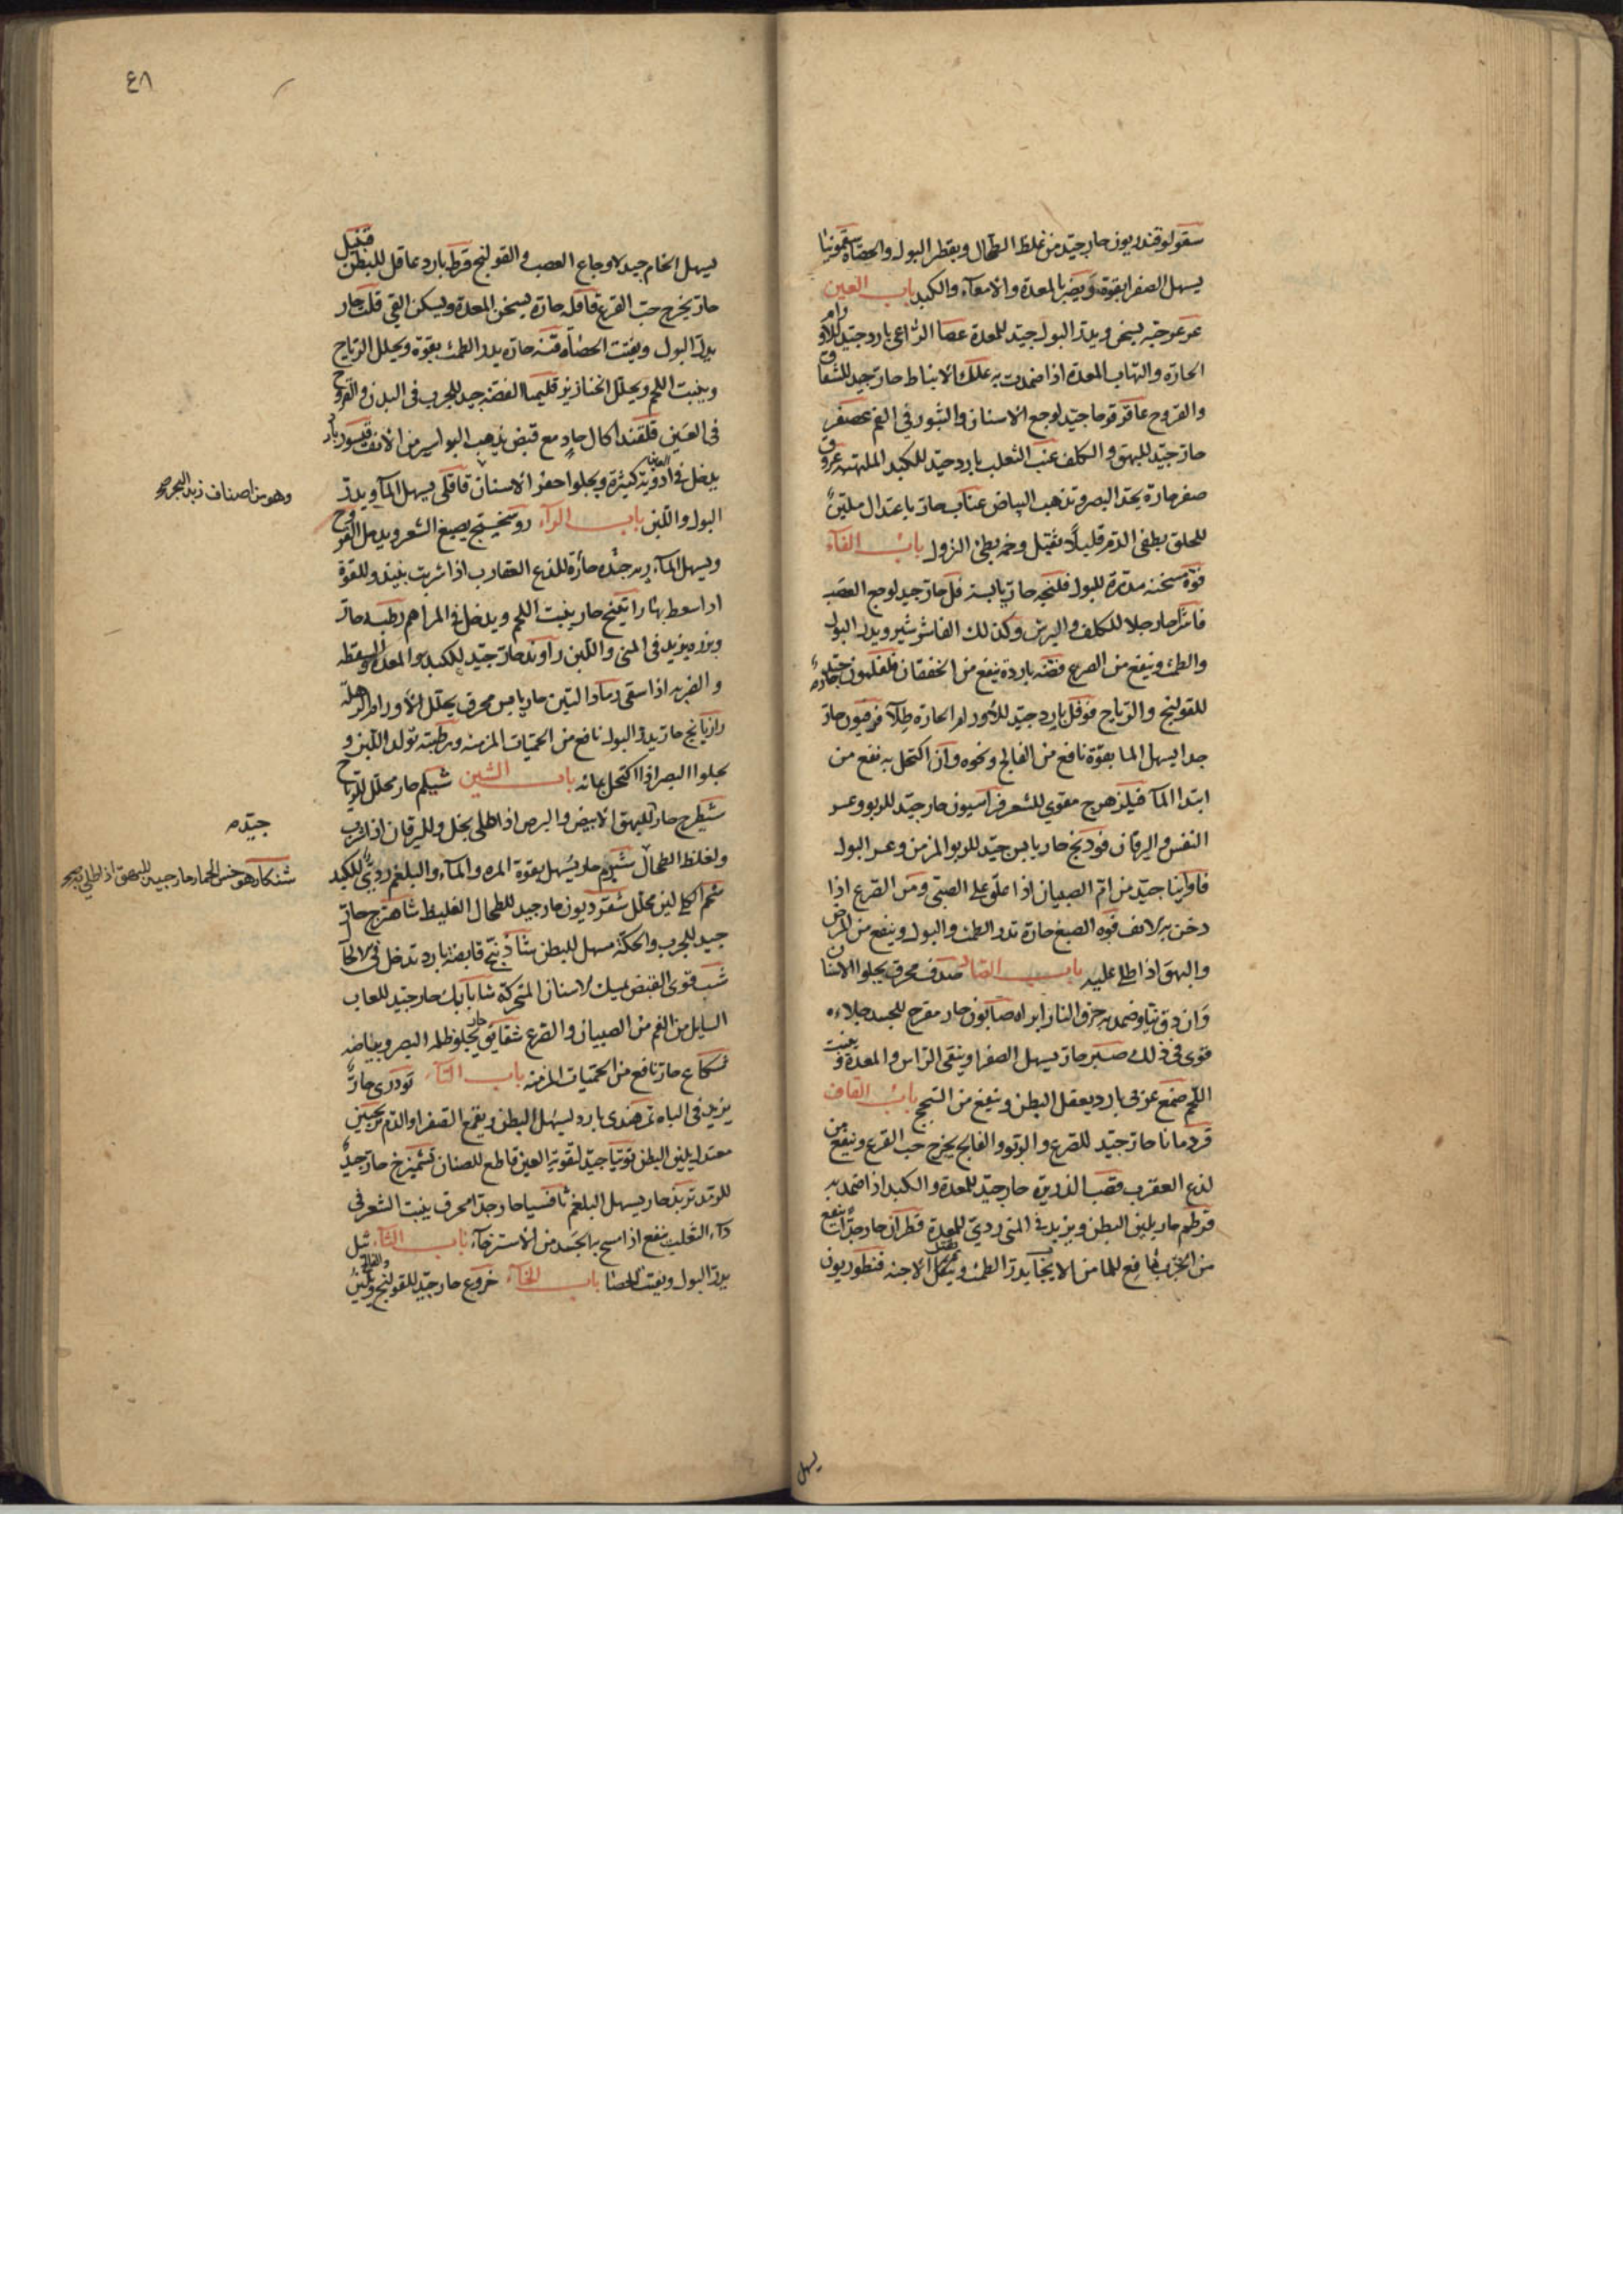 سقولوقندريون حار جيد من غلظ الطحال ويقطر البول والحصاة سقمونيا
يسهل الصفرا بقوة ويضر بالمعدة والامعآء والكبد باب العين
عرعر حبه يسخن ويدر البول جيد للمعدة عصا الراعي بارد جيد للاورام
الحارة والتهاب المعدة اذا ضمدت به علك الانباط حار جيد للشقاق
والقروح عاقرقرحا جيد لوجع الاسنان والبثور في الفم عصفر
حار جيد للبهق والكلف عنب الثعلب بارد جيد للكبد الملتهبه عروق
صفر حارة يحد البصر وتذهب البياض عناب حار باعتدال ملين
للحلق يطفى الدم قليلاً ثقيل وخم بطئ النزول باب الفآء
فوة مسخنه مدرة للبول فلنجه حار يابسة فل حار جيد لوجع العصب
فاشرا حار جلا للكلف والبرش وكذلك الفاشرشير ويدر البول
والطمث وينفع من الصرع فضه باردة ينفع من الخفقان فلفلمون جيد
للقولنج والرياح فوفل بارد جيد للأورام الحارة طلآ فرفيون حار
جدا يسهل الما بقوة نافع من الفالج ونحوه وان اكتحل به نفع من
ابتدا المآ فيلزهرج مقوي للشعر فراسيون حار جيد للربو وعسر
النفس واليرقان فودنج حار يابس جيد للربو المزمن وعسر البول
فاوانيا جيد من ام الصبيان اذا علق على الصبى ومن الصرع اذا
دخن به الانف فوه الصبغ حارة تدر الطمث والبول وينفع من البرص
والبهق اذا طلي عليه باب الصاد صدف محرق يجلوا الاسنان
وان دق نيا وضمد به حرق النار ابراه صابون حار مقرح للجسد جلاءه
قوى في ذلك صبر حار يسهل الصفرا وينقى الراس والمعدة وينبت
اللحم صمغ عربى بارد يعقل البطن وينفع من السحج باب القاف
قردمانا حار جيد للصرع والربو والفالج يخرج حب القرع وينفع من
لذع العقرب قصب الذريرة حار جيد للمعدة والكبد اذا ضمد به
قرطم حار يلين البطن ويزيد في المنى ردي للمعدة قطران حار جدا ينفع
من الجرب يدر الطمث الاجنه قنطوريون
يسهل
٤٨
يسهل الخام جيد لاوجاع العصب والقولنج قرظ بارد عاقل للبطن قنبيل
حار يخرج حب القرع قاقله حارة يسخن المعدة ويسكن القي قلت حار
يدر البول ويفتت الحصاه قنه حاره يدر الطمث بقوة ويحلل الرياح
وينبت اللحم ويحلل الخنازير قليميا الفضه جيد للجرب في البدن والقروح
في العين قلقند اكال حار مع قبض يذهب البواسير من الانف قيسور بارد
يدخل في ادوية العين كثيرة ويجلوا حفر الاسنان قاقلى يسهل المآ ويدر
وهو من اصناف زبد البحر صح
البول واللبن باب الرآء روسختج يصبغ الشعر ويدمل القروح
ويسهل المآء رته جيده حارة للذع العقارب اذا شربت بنبيذ وللقوة
اذا سعط بها راتينج حار ينبت اللحم ويدخل في المراهم رطبه حار
وبزره يزيد في المنى واللبن راوند حار جيد للكبد والمعدة والسقطه
والضربه اذا سقى رماد التين حار يابس محرق يحلل الأورام الرهله
رازيانج حار يدر البول نافع من الحميات المزمنه ورطبه تولد اللبن و
يجلوا البصر اذا اكتحل بمائه باب الشين شيلم حار محلل للرياح
شيطرج حار للبهق الأبيض والبرص اذا طلى بخل ولليرقان اذا شرب
جيد
ولغلظ الطحال شبرم حار يسهل بقوة المره والمآء والبلغم ردي للكبد
شنكار هو خس الحمار حار جيد للبهق اذا طلي به صح
شحم لين محلل شقرديون حار جيد للطحال الغليظ شاهترج حار
جيد للجرب والحكة مسهل للبطن شاذنج قابضه بارد تدخل في
شب قوى القبض يمسك الاسنان المتحركة شابابك حار جيد للعاب
السايل من الفم من الصبيان والصرع شقايق حار يجلو ظلمة البصر وبياضه
شكاع حار نافع من الحميات المزمنه باب التآء تودرى حار
يزيد في الباه تمر هندى بارد يسهل البطن ويقمع الصفرا والدم ترنجبين
معتدل يلين البطن توتيا جيد لتقوية العين قاطع للصنان تشميزج حار جيد
للرمد تربد حار يسهل البلغم ثافسيا حار جدا محرق ينبت الشعر في
دآء الثعلب ينفع اذا مسح به الجسد من الأسترخآء باب الثآء ثيل
يدر البول ويفتت الحصا باب الخآء خروع حار جيد للقولنج والفالج ويلين